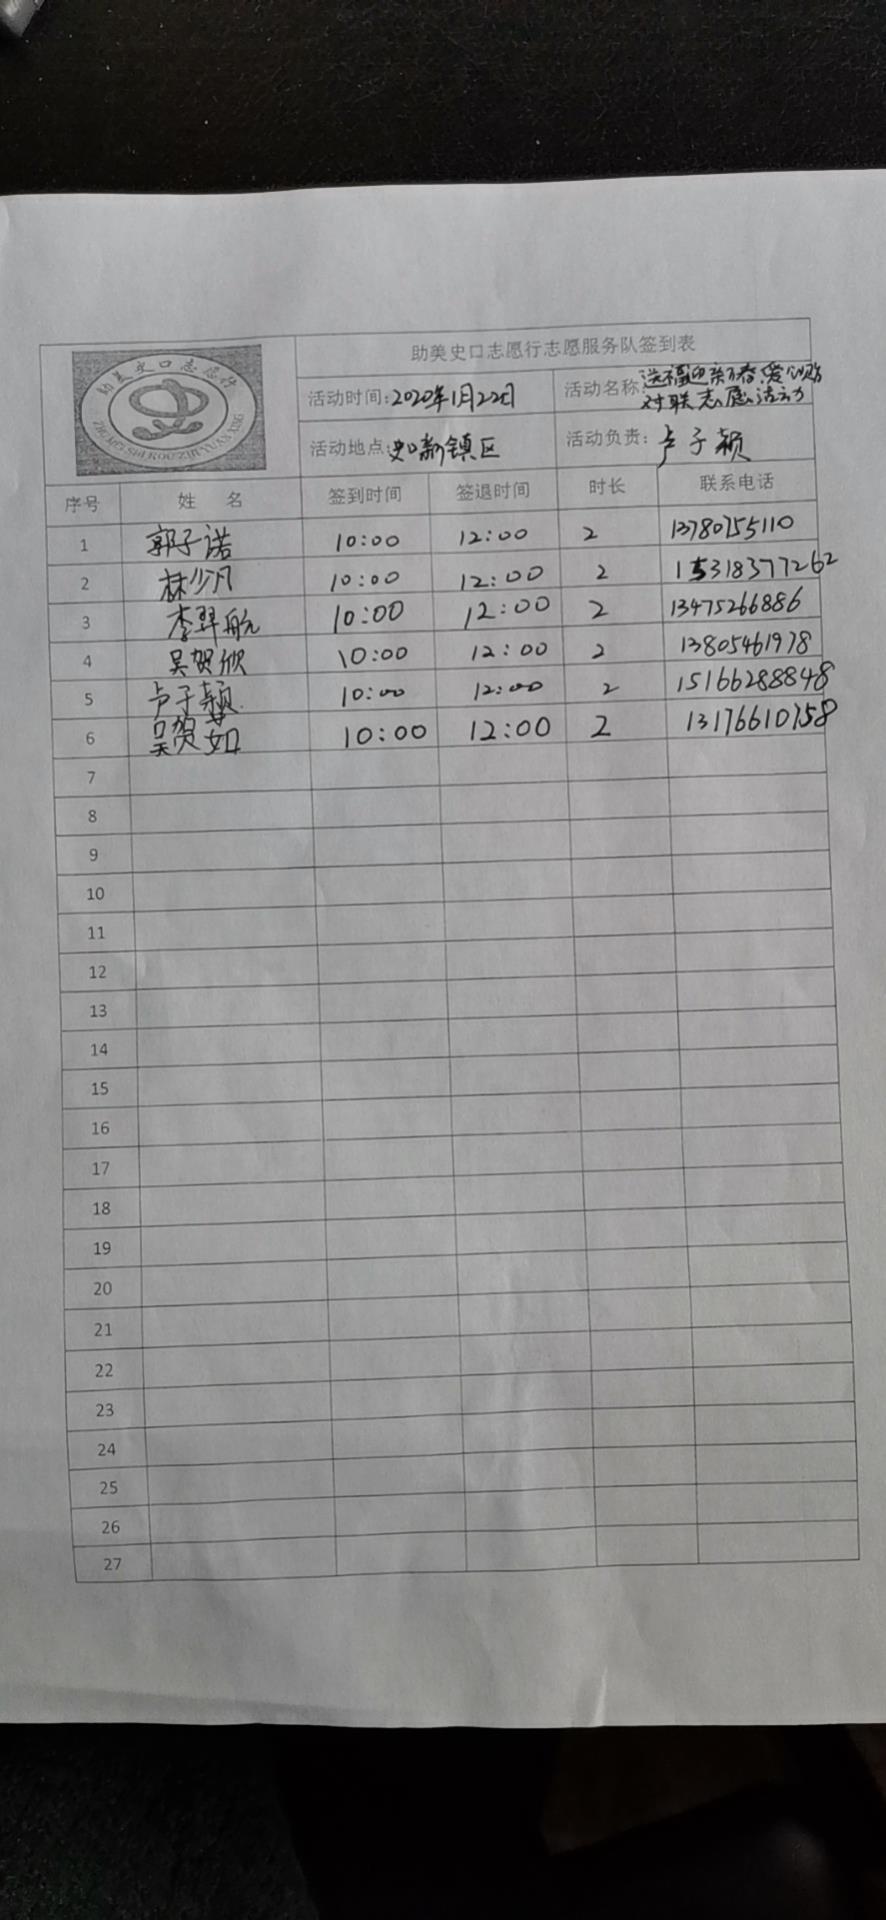 助美史口志愿行
ZHU MEI SHI KOU ZHI YUAN XING
助美史口志愿行志愿服务队签到表
活动时间:2020年1月22日 活动名称:送福迎新春,爱心贴
对联志愿活动
活动地点:史口新镇区 活动负责:卢子颖
序号 姓 名 签到时间 签退时间 时长 联系电话
1 郭子诺 10:00 12:00 2 13780755110
2 林少凡 10:00 12:00 2 15318377262
3 李羿航 10:00 12:00 2 13475266886
4 吴贺欣 10:00 12:00 2 13805461978
5 卢子颖 10:00 12:00 2 15166288848
6 吴贺茹 10:00 12:00 2 13176610758
7
8
9
10
11
12
13
14
15
16
17
18
19
20
21
22
23
24
25
26
27